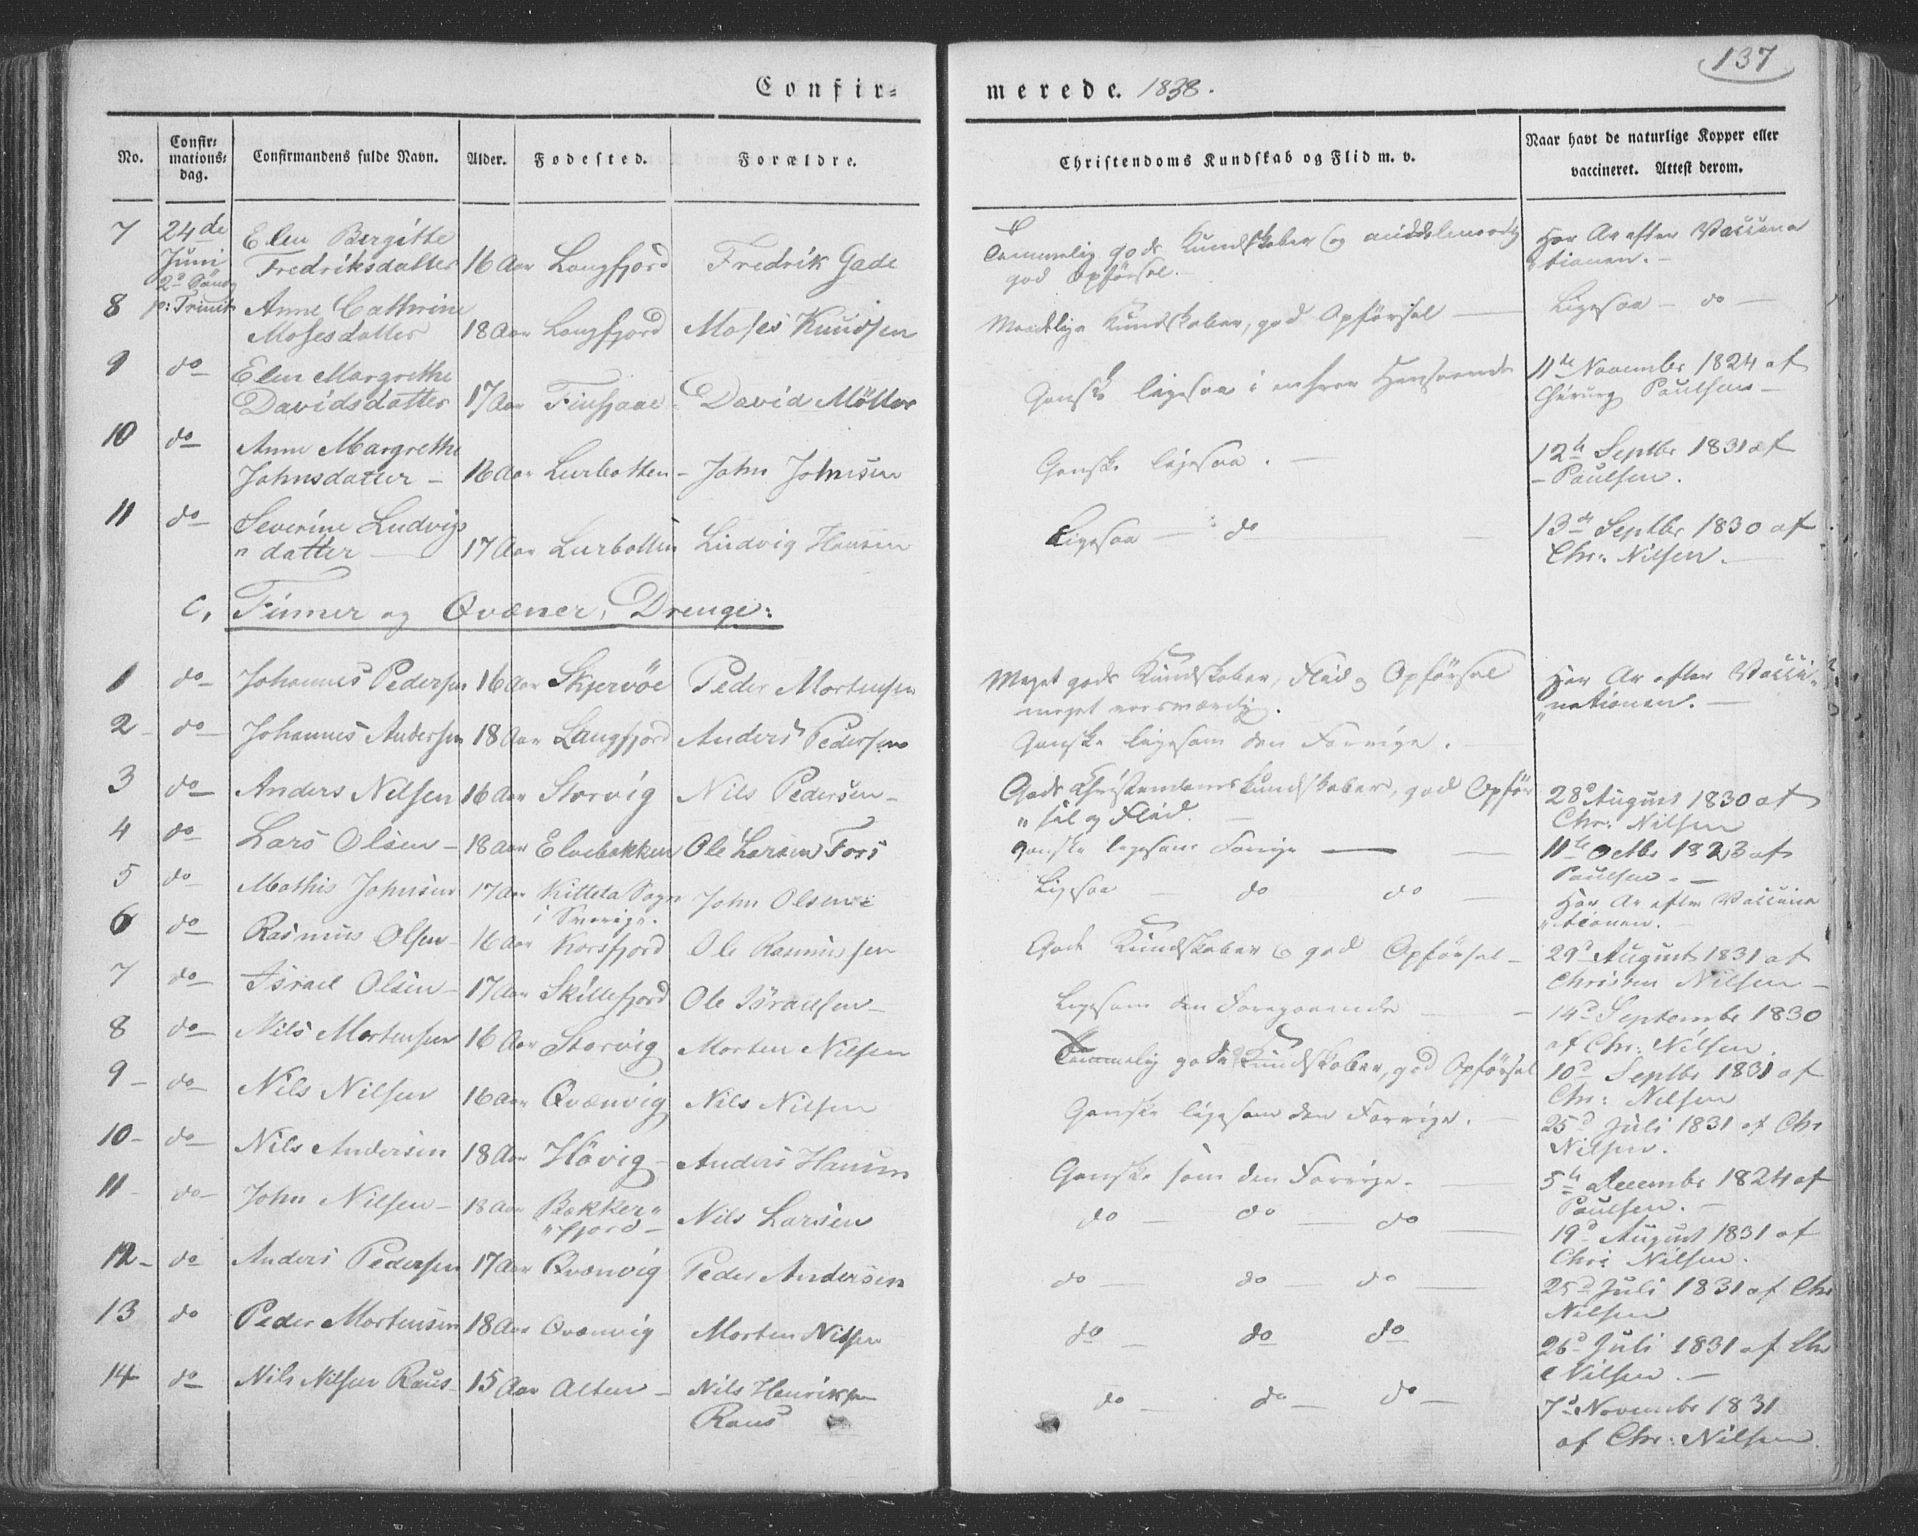 137
Confir-
merede. 1838.
No.
Confir-
mations-
dag.
Confirmandens fulde Navn.
Alder.
Fodested.
Forældre.
Christendoms Kundskab og Flid m. v.
Naar havt de naturlige Kopper eller
vaccineret. Attest derom.
7 24de Elen Birgitte
Juni Fredriksdatter 16 Aar Langfjord Fredrik Gade
2d Sönd
p: Trinit:
Temmelig gode Kundskaber og middelmaadig
god Opførsel.
Har Ar efter Vaccina
"tionen.
8 Anne Cathrine
Mosesdatter 18 Aar Langfjord Moses Knudsen
Maadelige Kundskaber, god Opførsel
Ligesaa - do -
9 do Elen Margrethe
Davidsdatter 17 Aar David Möller
Ganske ligesaa i enhver Henseende
11te November 1824 af
Chirurg Paulsen -
10 do Anne Margrethe
Johnsdatter - 16 Aar Lerbotten - John Johnsen
Ganske ligesaa. -
12te Septbr 1831 af
- Paulsen.
11 do Severine Ludvigs
"datter 17 Aar Lerbotten Ludvig Hansen
Ligesaa - do
13de Septbr 1830 af
Chr: Nilsen. -
C, Finner og Qvæner, Drenge:
1 do Johannes Pedersen 16 Aar Skjervöe Peder Mortensen
Meget gode Kundskaber, Flid og Opførsel
meget
Har Ar efter Vacci-
"nationen. -
2 - do Johannes Andersen 18 Aar Langfjord Anders Pedersen
Ganske ligesom den Forrige. -
3 do Anders Nilsen 16 Aar Storvig Nils Pedersen -
Gode Christendomskundskaber, god Opfør
"sel og Flid.
28d August 1830 af
Chr: Nilsen
4 do Lars Olsen - 18 Aar Elvebakken Ole Larsen Fors
Ganske ligesom Forrige
11te Octbr 1823 af
Paulsen. -
5 do Mathis Johnsen 17 Aar Killela Sogn
i Sverige. John Olsen
Ligesaa - do do
Har Ar efter Vaccina
"tionen.
6 do Rasmus Olsen - 16 Aar Korsfjord Ole Rasmussen
Gode Kundskaber og god Opførsel -
29d August 1831 af
Christen Nilsen -
7 do Israel Olsen - 17 Aar Skillefjord Ole Israelsen -
Ligesom den Foregaaende
14d Septembr 1830
af Chr: Nilsen.
8 do Nils Mortensen 16 Aar Storvig Morten Nilsen
Temmelig gode Kundskaber, god Opførsel
10d Septbr 1831 af
Chr: Nilsen
9 - do Nils Nilsen 16 Aar Qvænvig Nils Nilsen
Ganske ligesom den Forrige. -
25d Juli 1831 af Chr
Nilsen.
10 - do Nils Andersen 18 Aar Anders Hansen
Ganske som den Forrige. -
5te Decembr 1824 af
Paulsen. -
11 - do John Nilsen - 18 Aar Bekker"
"fjord - Nils Larsen
do - do - do
19d August 1831 af
Chr: Nilsen.
12 - do Anders Pedersen 17 Aar Qvænvig Peder Andersen
do - do do
25d Juli 1831 af Chr
Nilsen
13 do Peder Mortensen 18 Aar Qvænvig Morten Nilsen
do do do
26d Juli 1831 af Chr
Nilsen. -
14 do Nils Nilsen Raus - 15 Aar Alten - Nils Henriksen
Raus
do - do - do -
7d November 1831
af Chr: Nilsen.